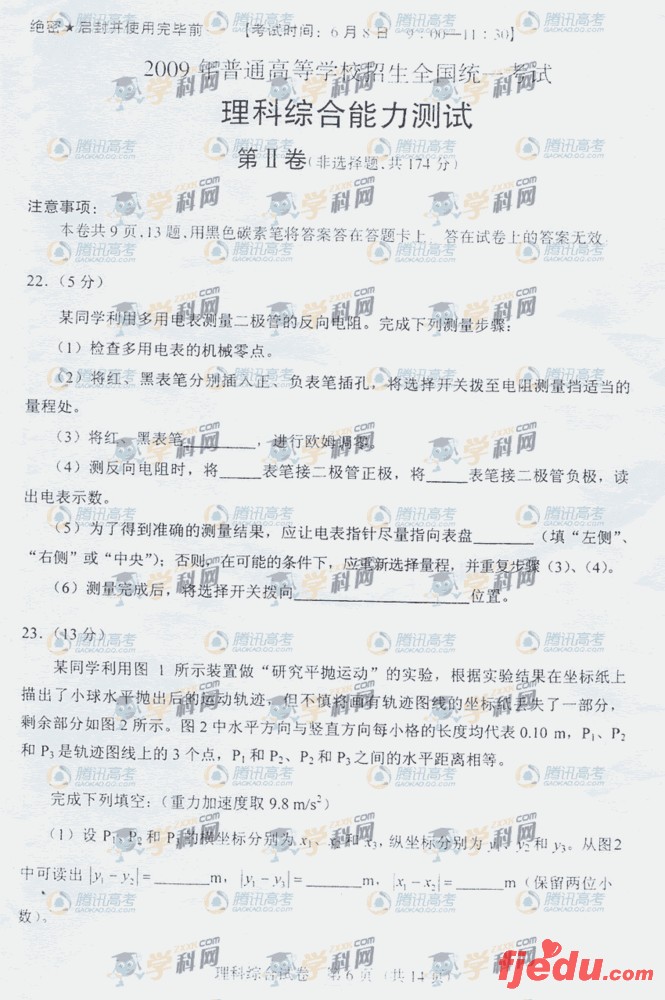 绝密★启封并使用完毕前 【考试时间：6月8日 9：00—11：30】
2009年普通高等学校招生全国统一考试
理科综合能力测试
第Ⅱ卷(非选择题,共174分)
注意事项：
本卷共9页,13题,用黑色碳素笔将答案答在答题卡上 答在试卷上的答案无效
22.（5分）
某同学利用多用电表测量二极管的反向电阻。完成下列测量步骤：
（1）检查多用电表的机械零点。
（2）将红、黑表笔分别插入正、负表笔插孔，将选择开关拨至电阻测量挡适当的
量程处。
（3）将红、黑表笔________，进行欧姆调零
（4）测反向电阻时，将____表笔接二极管正极，将____表笔接二极管负极，读
出电表示数。
（5）为了得到准确的测量结果，应让电表指针尽量指向表盘______（填“左侧”、
“右侧”或“中央”）；否则，在可能的条件下，应重新选择量程，并重复步骤（3）、（4）。
（6）测量完成后，将选择开关拨向________________位置。
23.（13分）
某同学利用图 1 所示装置做“研究平抛运动”的实验，根据实验结果在坐标纸上
描出了小球水平抛出后的运动轨迹，但不慎将画有轨迹图线的坐标纸丢失了一部分，
剩余部分如图 2 所示。图 2 中水平方向与竖直方向每小格的长度均代表 0.10 m，P₁、P₂
和 P₃ 是轨迹图线上的 3 个点，P₁ 和 P₂、P₂ 和 P₃ 之间的水平距离相等。
完成下列填空：（重力加速度取 9.8 m/s²）
（1）设 P₁、P₂ 和 P₃ 的横坐标分别为 x₁、x₂ 和 x₃，纵坐标分别为 y₁、y₂ 和 y₃。从图2
中可读出 |y₁－y₂|＝______m，|y₁－y₃|＝______m，|x₁－x₂|＝______m（保留两位小
数）。
理科综合试卷 第 6 页（共 14 页）
fjedu.com